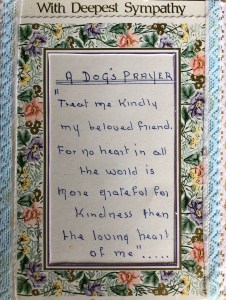 With Deepest Sympathy
A DOG'S PRAYER
"Treat me kindly
my beloved friend.
For no heart in all
the world is
more grateful for
kindness than
the loving heart
of me".....